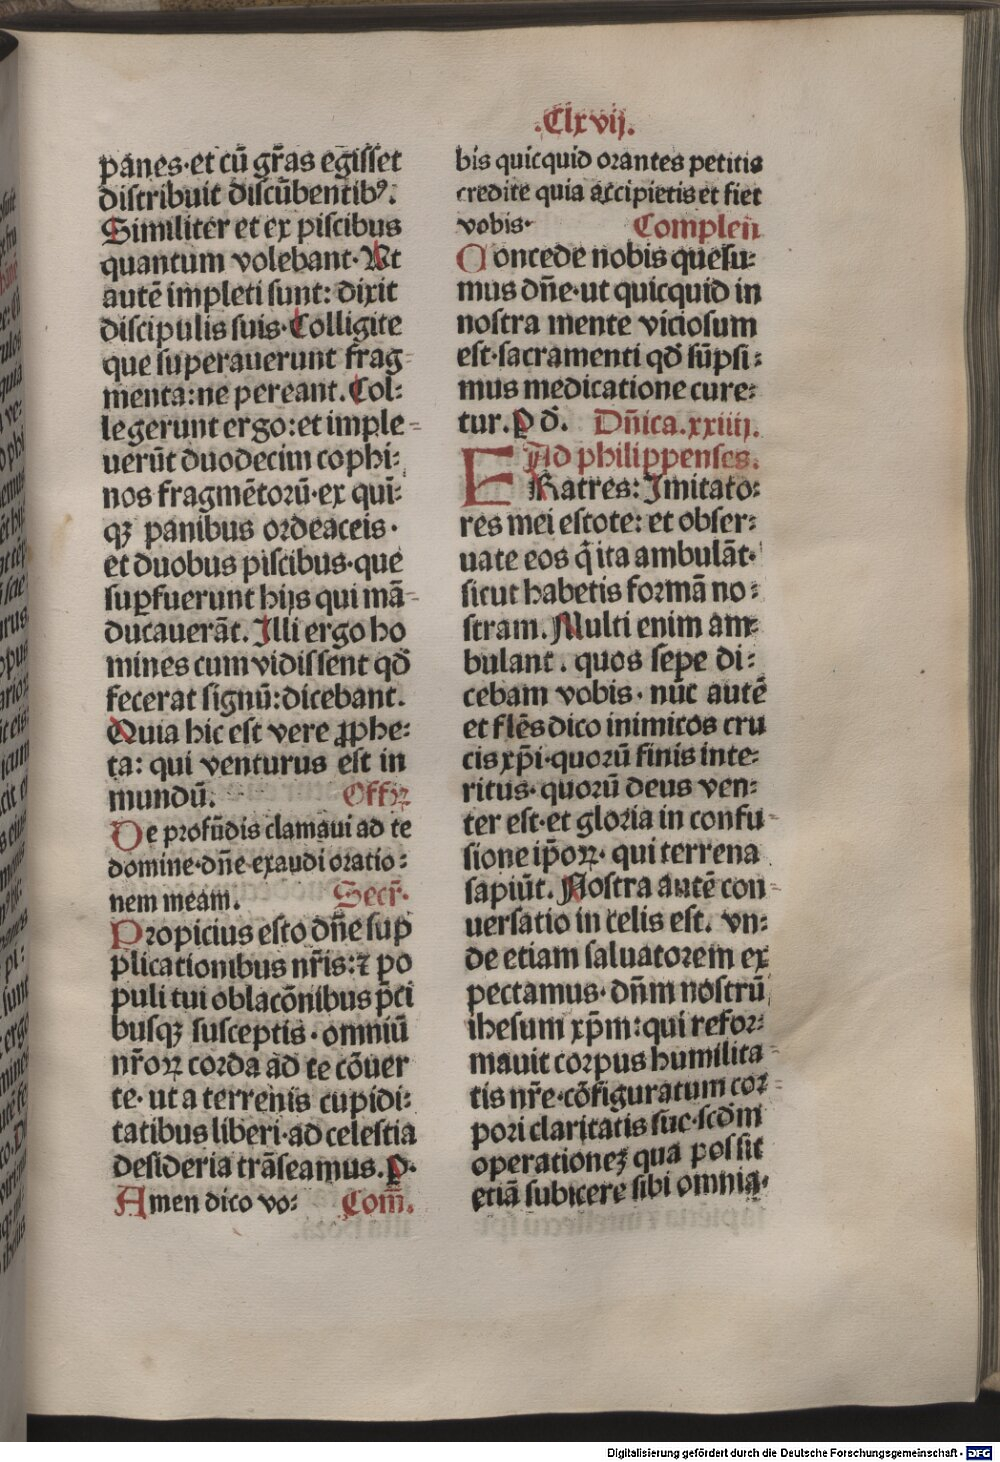 .Clxvij.
panes·et cū gr̄as egisset
distribuit discūbentibꝰ.
Similiter et ex piscibus
quantum volebant·At
autē impleti sunt: dixit
discipulis suis·Colligite
que superauerunt frag-
menta:ne pereant.Col-
legerunt ergo:et imple-
uerūt duodecim cophi-
nos fragmētorū·ex qui-
qꝫ panibus ordeaceis·
et duobus piscibus·que
suꝑfuerunt hijs qui mā-
ducauerāt. Illi ergo ho
mines cum vidissent qđ
fecerat signū:dicebant.
Quia hic est vere ꝓphe-
ta: qui venturus est in
mundū. Offꝝ
De profūdis clamaui ad te
domine·dn̄e·exaudi oratio-
nem meam. Secr̄·
Propicius esto dn̄e sup
plicationibus nr̄is:⁊ po
puli tui oblacōnibus p̄ci
busqꝫ susceptis·omniū
nr̄oꝝ corda ad te cōuer
te·ut a terrenis cupidi-
tatibus liberi·ad celestia
desideria trāseamus.P·
Amen dico vo- Com̄.
bis quicquid orantes petitis
credite quia accipietis et fiet
vobis· Complen̄
Concede nobis quesu-
mus dn̄e·ut quicquid in
nostra mente viciosum
est·sacramenti qđ sūpsi-
mus medicatione cure-
tur.P đ. Dn̄ica.xxiiij.
Ad philippenses.
FRatres: Imitato-
res mei estote: et obser-
uate eos q̄ ita ambulāt·
sicut habetis formā no-
stram. Multi enim am-
bulant. quos sepe di-
cebam vobis· nūc autē
et flēs dico inimicos cru
cis xp̄i·quorū finis inte-
ritus·quorū deus ven-
ter est·et gloria in confu-
sione ip̄oꝝ· qui terrena
sapiūt. Nostra autē con-
uersatio in celis est. vn-
de etiam saluatorem ex
pectamus·dn̄m nostrū
ihesum xp̄m:qui refor-
mauit corpus humilita-
tis nr̄e·cōfiguratum cor-
pori claritatis sue·scđm
operationeꝫ qua possit
etiā subicere sibi omnia·
Digitalisierung gefördert durch die Deutsche Forschungsgemeinschaft - DFG